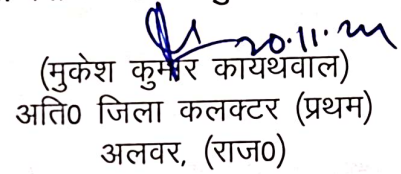 20.11.24
(मुकेश कुमार कायथवाल)
अति0 जिला कलक्टर (प्रथम)
अलवर, (राज0)